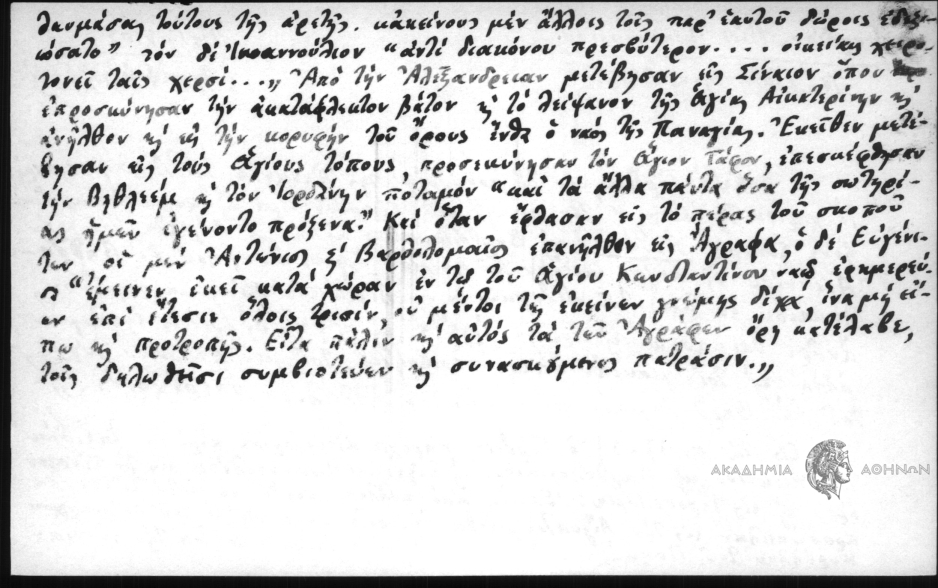 θαυμάσας τούτους τῆς ἀρετῆς. κἀκείνους μέν ἄλλοις τοῖς παρ' ἑαυτοῦ δώροις ἐδεξ-
ιώσατο" τόν δέ Ἰωαννούλιον "ἀντί διακόνου πρεσβύτερον.... οἰκείαις χειρο-
τονεῖ ταῖς χερσί...„ Ἀπό τήν Ἀλεξάνδρειαν μετέβησαν εἰς Σίναιον ὅπου
ἐπροσκύνησαν τήν ἀκατάφλεκτον βάτον κ τό λείψανον τῆς Ἁγίας Αἰκατερίνην κ
ἀνῆλθον κ εἰς τήν κορυφήν τοῦ ὄρους ἔνθα ὁ ναός τῆς Παναγίας. Ἐκεῖθεν μετέ-
βησαν εἰς τούς Ἁγίους τόπους, προσεκύνησαν τόν ἅγιον Τάφον, ἐπεσκέφθησαν
τήν Βηθλεέμ κ τόν Ἰορδάνην ποταμόν "καί τά ἄλλα πάντα ὅσα τῆς σωτηρί-
ας ἡμῶν ἐγένοντο πρόξενα." Καί ὅταν ἔφθασαν εἰς τό πέρας τοῦ σκοποῦ
των οἱ μέν Ἀντώνιος κ Βαρθολομαῖος ἐπανῆλθον εἰς Ἄγραφα, ὁ δέ Εὐγένι-
ος "ἔμεινεν ἐκεῖ κατά χώραν ἐν τῷ τοῦ ἁγίου Κωνσταντίνου ναῷ ἐφημερεύ-
ων ἐπί ἔτεσιν ὅλοις τρισίν, οὐ μέντοι τῆς ἐκείνων γνώμης δίχα, ἵνα μή εἴ-
πω κ προτροπῆς. Εἶτα πάλιν κ αὐτός τά τῶν Ἀγράφων ὄρη κατέλαβε,
τοῖς δηλωθεῖσι συμβιοτεύων κ συνασκούμενος πατράσιν.„
ΑΚΑΔΗΜΙΑ ΑΘΗΝΩΝ